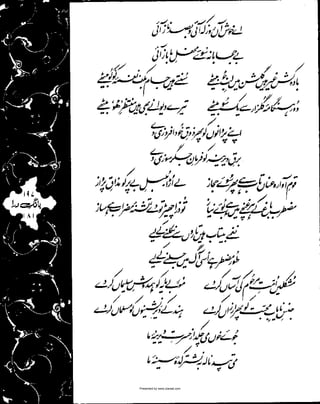 اے خوش آں روز کہ آئی و بصد ناز آئی
بے حجابانہ سوئے محفلِ ما باز آئی
بادہ کش غیر ہیں گلشن میں لبِ جو بیٹھے سنتے ہیں جام بکف نغمۂ کو کو بیٹھے
دور ہنگامۂ گلزار سے یک سو بیٹھے تیرے دیوانے بھی ہیں منتظرِ ھو بیٹھے
اپنے پروانوں کو پھر ذوقِ خود افروزی دے
برقِ دیرینہ کو فرمانِ جگر سوزی دے
قومِ آوارہ عناں تاب ہے پھر سوئے حجاز لے اڑا بلبلِ بے پر کو مذاقِ پرواز
مضطرب باغ کے ہر غنچے میں ہے بوئے نیاز تو ذرا چھیڑ تو دے تشنۂ مضراب ہے ساز
نغمے بیتاب ہیں تاروں سے نکلنے کے لیے
طور مضطر ہے اسی آگ میں جلنے کے لیے
مشکلیں امتِ مرحوم کی آساں کر دے مورِ بے مایہ کو ہمدوشِ سلیماں کر دے
جنسِ نایابِ محبت کو پھر ارزاں کر دے ہند کے دیر نشینوں کو مسلماں کر دے
جوئے خوں می چکد از حسرتِ دیرینۂ ما
می تپد نالہ بہ نشتر کدۂ سینۂ ما
بانگِ درا